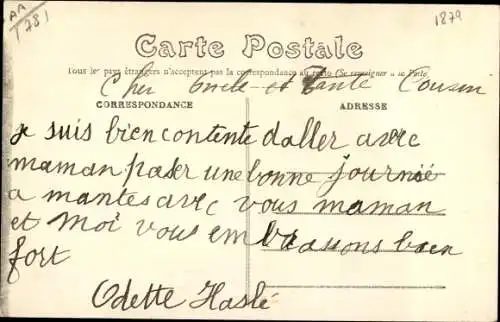 AA
781
1879
Carte Postale
Tous les pays étrangers n'acceptent pas la correspondance au recto (Se renseigner à la Poste)
Cher oncle et Tante Cousin
CORRESPONDANCE
ADRESSE
je suis bien contente daller avec
maman paser une bonne journié
a mantes avec vous maman
et Moi vous embrassons bien
fort
Odette Haslé